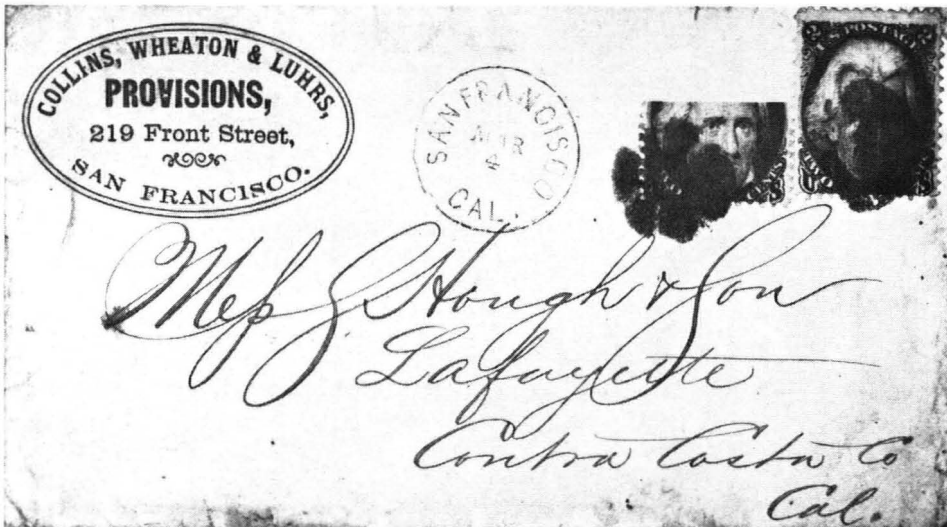 COLLINS, WHEATON & LUHRS,
PROVISIONS,
219 Front Street,
SAN FRANCISCO.
SAN FRANCISCO
MAR
4
CAL.
U.S. POSTAGE
Mess J Hough & Son
Lafayette
Contra Costa Co
Cal.